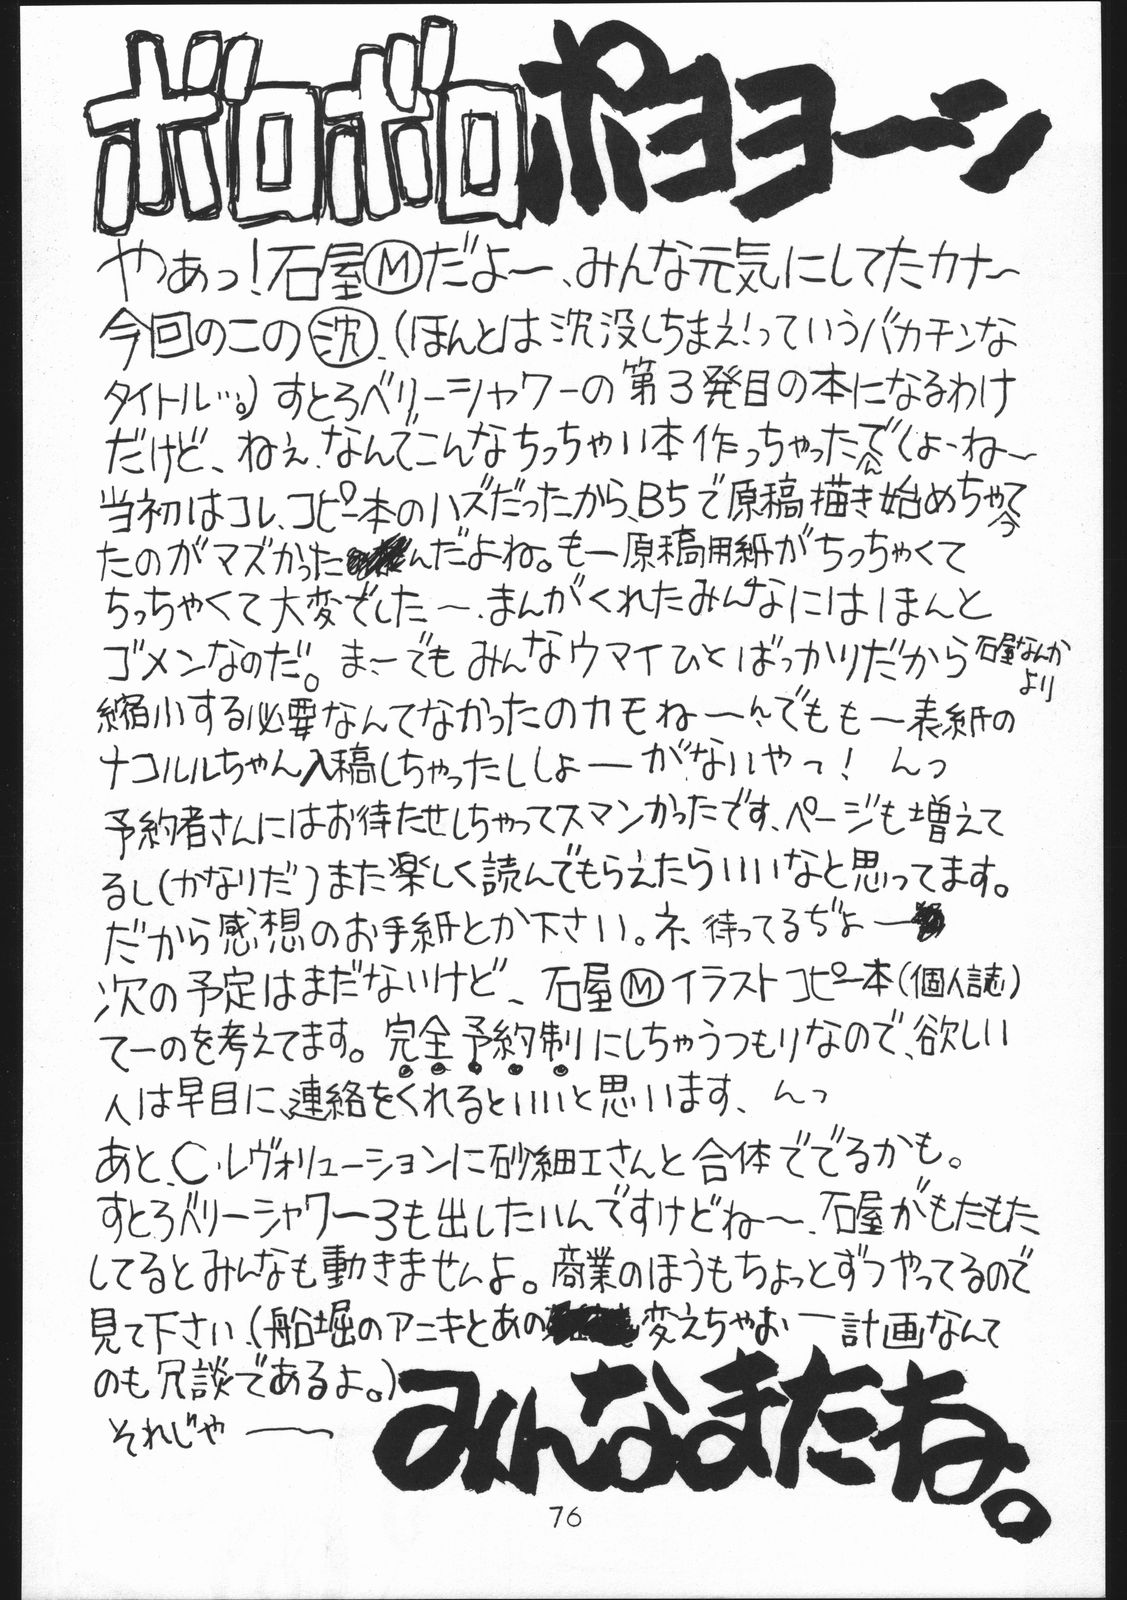 ボロボロポヨヨーン
やぁっ!石屋Ⓜだよ〜、みんな元気にしてたカナ〜
今回のこの沈、(ほんとは沈没しちまえ!っていうバカチンな
タイトル…。)すとろベリーシャワーの第3発目の本になるわけ
だけど、ねぇ、なんでこんなちっちゃい本作っちゃったんでしょーね〜
当初はコレ、コピー本のハズだったから、B5で原稿描き始めちゃって
たのがマズかったんだよね。もー原稿用紙がちっちゃくて
ちっちゃくて大変でした〜、まんがくれたみんなにはほんと
ゴメンなのだ。ま〜でもみんなウマイひとばっかりだから石屋なんかより
縮小する必要なんてなかったのカモね〜んでももー表紙の
ナコルルちゃん入稿しちゃったししょーがないやっ! んっ
予約者さんにはお待たせしちゃってスマンかったです、ページも増えて
るし(かなりだ)また楽しく読んでもらえたらいいなと思ってます。
だから感想のお手紙とか下さい。ネ、待ってるぢょー
次の予定はまだないけど、石屋Ⓜイラストコピー本(個人誌)
てーのを考えてます。完全予約制にしちゃうつもりなので、欲しい
人は早目に、連絡をくれるといいと思います、 んっ
あと、C・レヴォリューションに砂細工さんと合体ででるかも。
すとろベリーシャワー3も出したいんですけどね〜、石屋がもたもた
してるとみんなも動きませんよ。商業のほうもちょっとずつやってるので
見て下さい、(船堀のアニキとあの変えちゃおー計画なんて
のも冗談であるよ。)
それじゃ——
みんなまたね。
76